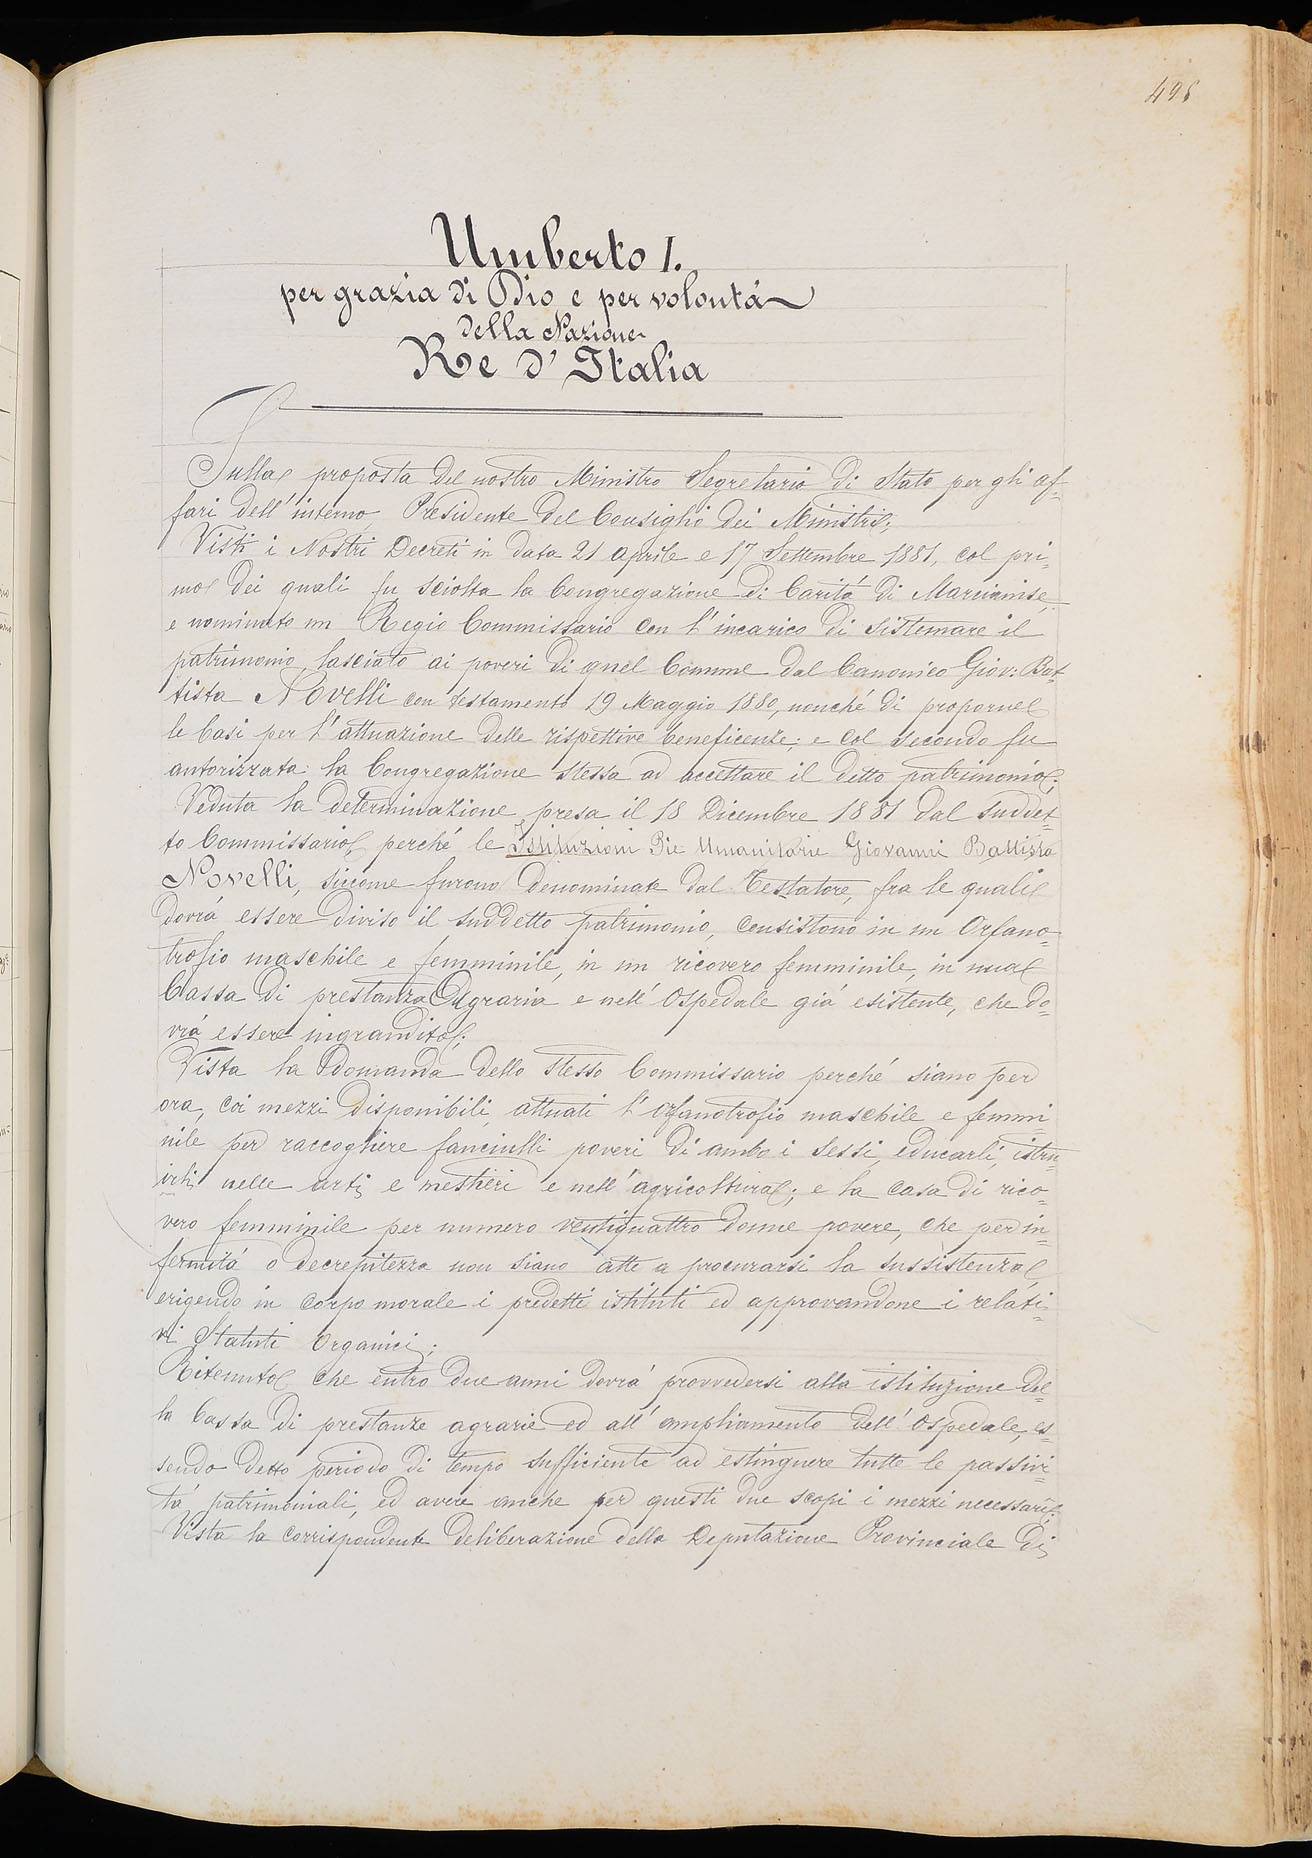 498
Umberto I.
per grazia di Dio e per volontà
della Nazione
Re d'Italia
Sulla proposta del nostro Ministro Segretario di Stato per gli af-
fari dell'interno, Presidente del Consiglio dei Ministri;
Visti i Nostri Decreti in data 21 aprile e 17 Settembre 1881, col pri-
mo dei quali fu sciolta la Congregazione di Carità di Marcianise,
e nominato un Regio Commissario con l'incarico di sistemare il
patrimonio, lasciato ai poveri di quel Comune dal Canonico Giov: Bat-
tista Novelli con testamento 19 Maggio 1880, nonché di proporne
le basi per l'attuazione delle rispettive beneficenze; e col secondo fu
autorizzata la Congregazione stessa ad accettare il detto patrimonio;
Veduta la determinazione presa il 18 Dicembre 1881 dal suddet-
to Commissario, perché le Istituzioni Pie Umanitarie Giovanni Battista
Novelli, siccome furono denominate dal Testatore, fra le quali
dovrà essere diviso il suddetto patrimonio, consistono in un Orfano-
trofio maschile e femminile, in un ricovero femminile, in una
Cassa di prestanza Agraria e nell'Ospedale già esistente, che do-
vrà essere ingrandito;
Vista la domanda dello stesso Commissario perché siano per
ora, coi mezzi disponibili, attuati l'orfanotrofio maschile e femmi-
nile per raccogliere fanciulli poveri di ambo i sessi, educarli, istru-
irli nelle arti e mestieri e nell'agricoltura; e la casa di rico-
vero femminile per numero ventiquattro donne povere, che per in-
fermità o decrepitezza non siano atte a procurarsi la sussistenza,
erigendo in corpo morale i predetti istituti ed approvandone i relati-
vi Statuti Organici;
Ritenuto che entro due anni dovrà provvedersi alla istituzione del-
la Cassa di prestanze agrarie ed all'ampliamento dell'Ospedale, es-
sendo detto periodo di tempo sufficiente ad estinguere tutte le passivi-
tà patrimoniali, ed avere anche per questi due scopi i mezzi necessarî;
Vista la corrispondente deliberazione della Deputazione Provinciale di